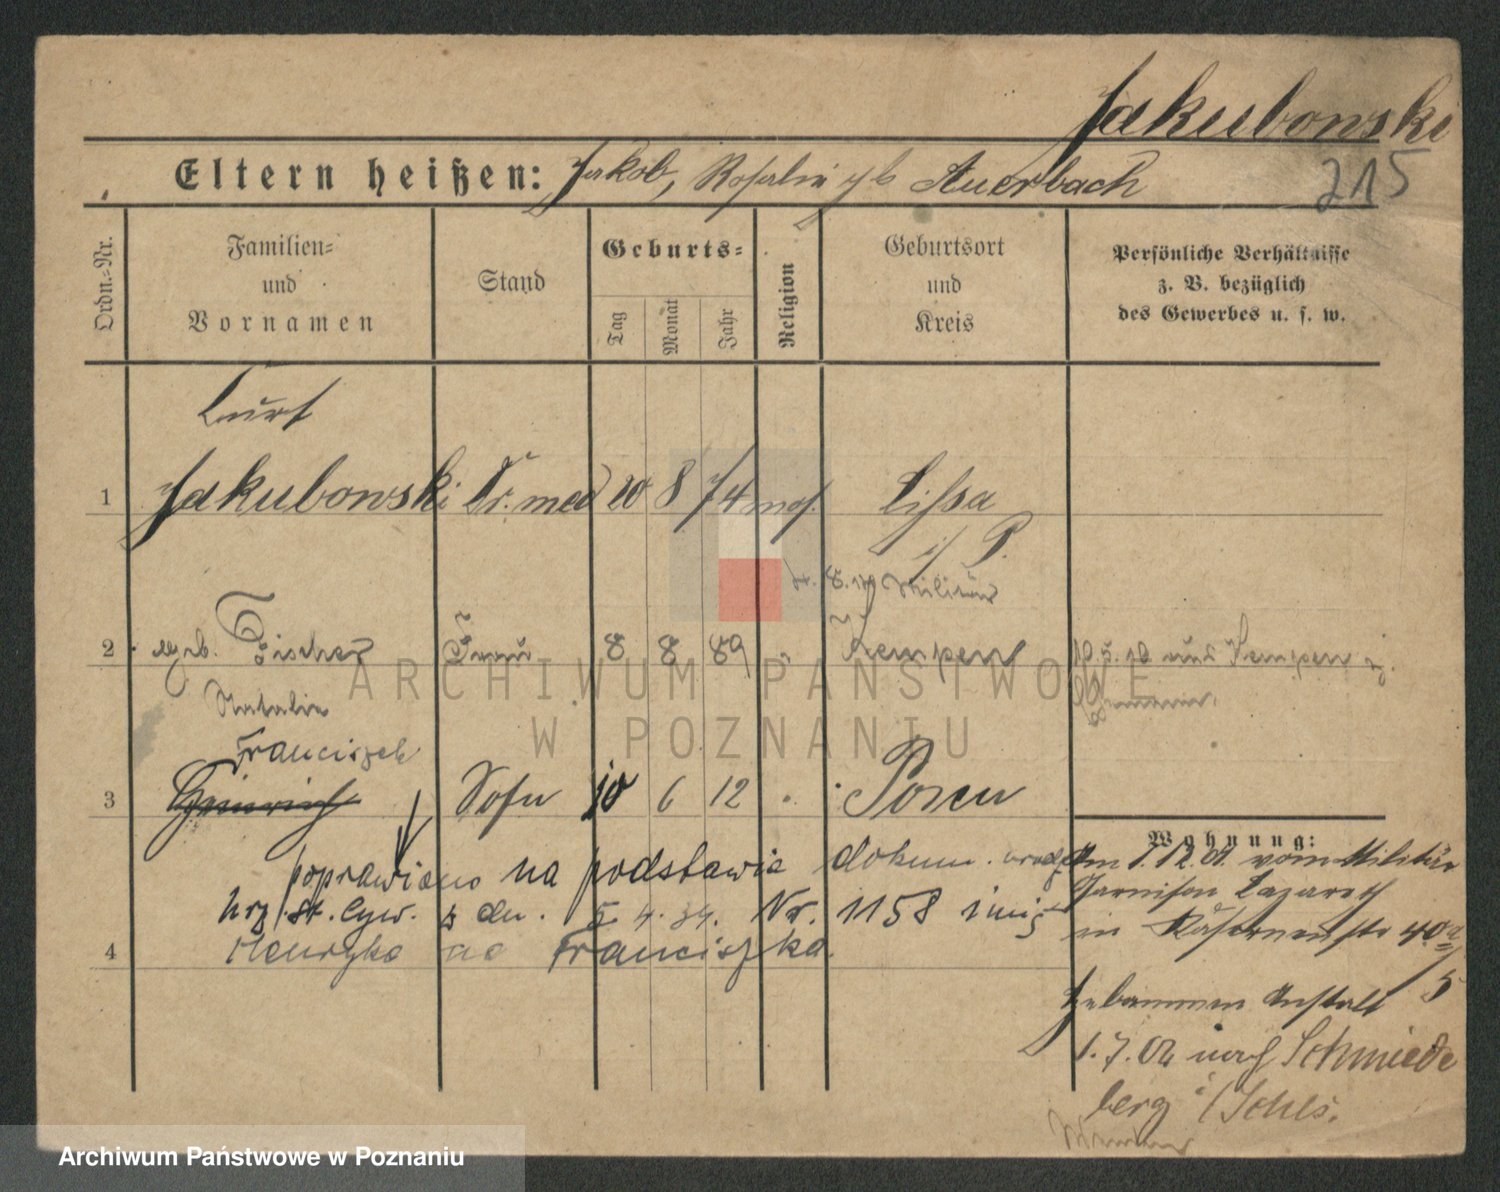 Jakubowski
215
Eltern heißen: Jakob, Rosalie gb Auerbach
Ordn.-Nr.
Familien-
und
Vornamen
Stand
Geburts-
Tag
Monat
Jahr
Religion
Geburtsort
und
Kreis
Persönliche Verhältnisse
z. B. bezüglich
des Gewerbes u. s. w.
Curt
1 Jakubowski Dr. med 20 8 74 mos. Lissa
i/ P.
Militär
2 geb. Fischer Frau 8 8 89 Kempen
Natalie
Franciszek
3 Heinrich Sohn 10 6 12 Posen
poprawiono na podstawie dokum. urodz
Urz. St. Cyw. z dn. 5. 4. 34. Nr. 1158 imię
4 Henryka na Franciszka.
Wohnung:
vom Militär
Garnison Lazareth
in Kasernenstr 40a
Hebammen Anstalt 5
1. 7. 02 nach Schmiede
berg i/Schles.
ARCHIWUM PAŃSTWOWE
W POZNANIU
Archiwum Państwowe w Poznaniu